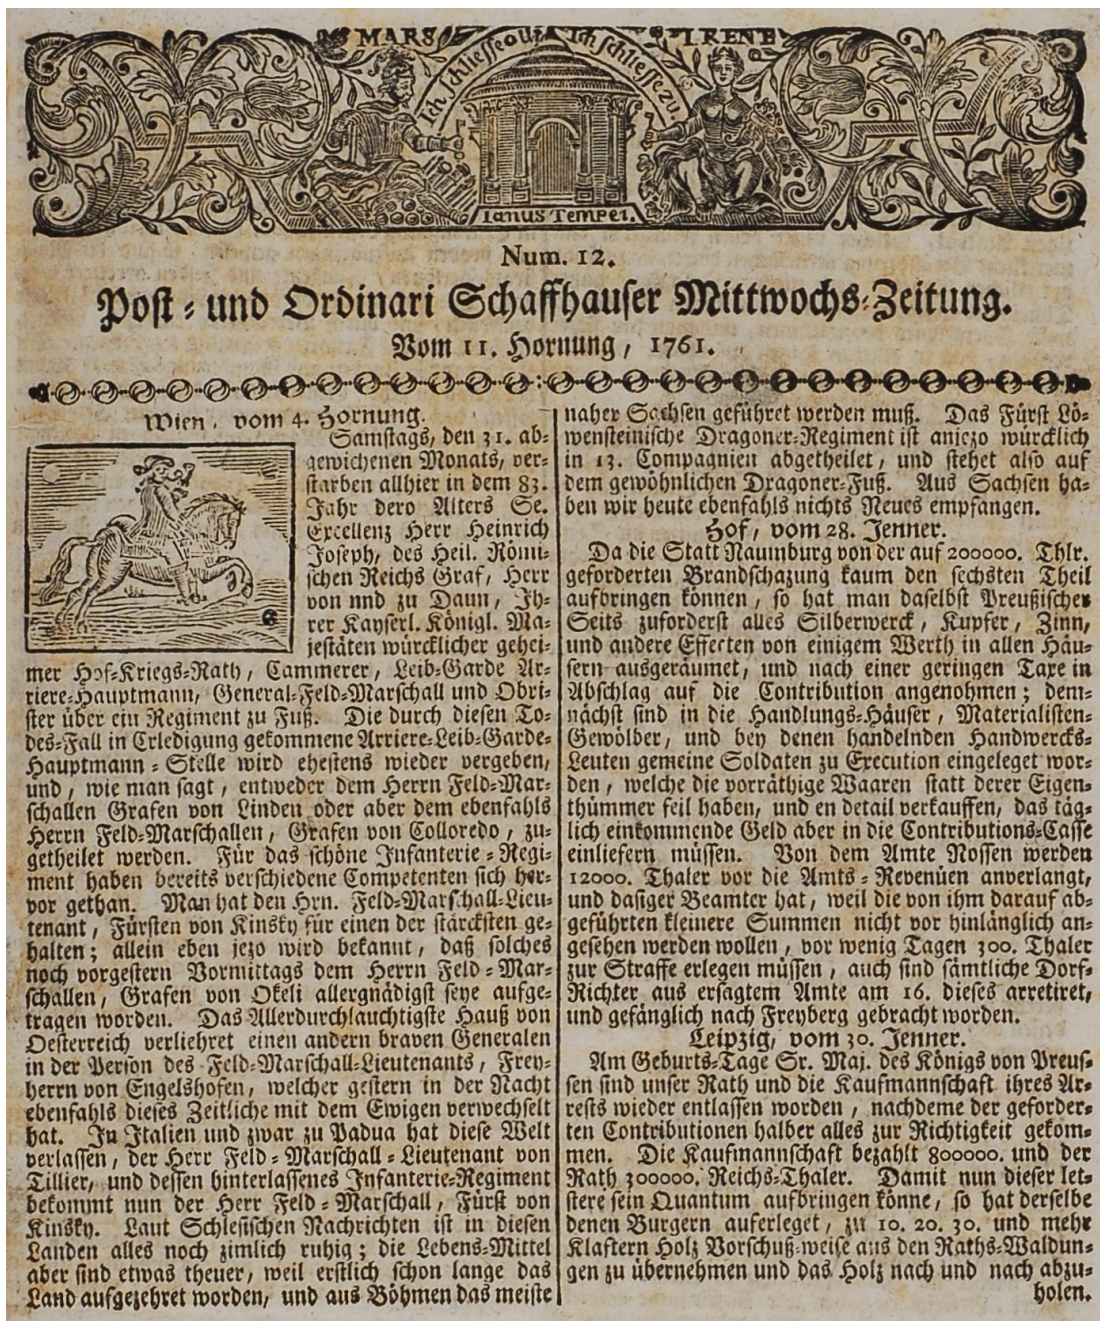 MARS
IRENE
Ich schliesse auf
Ich schliesse zu.
Ianus Tempel.
Num. 12.
Post- und Ordinari Schaffhauser Mittwochs-Zeitung.
Vom 11. Hornung, 1761.
Wien, vom 4. Hornung.
Samstags, den 31. ab-
gewichenen Monats, ver-
starben allhier in dem 83.
Jahr dero Alters Se.
Excellenz Herr Heinrich
Joseph, des Heil. Römi-
schen Reichs Graf, Herr
von nnd zu Daun, Ih-
rer Kayserl. Königl. Ma-
jestäten würcklicher gehei-
mer Hof-Kriegs-Rath, Cammerer, Leib-Garde Ar-
riere-Hauptmann, General-Feld-Marschall und Obri-
ster über ein Regiment zu Fuß. Die durch diesen To-
des-Fall in Erledigung gekommene Arriere-Leib-Garde-
Hauptmann-Stelle wird ehestens wieder vergeben,
und, wie man sagt, entweder dem Herrn Feld-Mar-
schallen Grafen von Linden oder aber dem ebenfahls
Herrn Feld-Marschallen, Grafen von Colloredo, zu-
getheilet werden. Für das schöne Infanterie-Regi-
ment haben bereits verschiedene Competenten sich her-
vor gethan. Man hat den Hrn. Feld-Marschall-Lieu-
tenant, Fürsten von Kinsky für einen der stärcksten ge-
halten; allein eben jezo wird bekannt, daß solches
noch vorgestern Vormittags dem Herrn Feld-Mar-
schallen, Grafen von Okeli allergnädigst seye aufge-
tragen worden. Das Allerdurchlauchtigste Hauß von
Oesterreich verliehret einen andern braven Generalen
in der Person des Feld-Marschall-Lieutenants, Frey-
herrn von Engelshofen, welcher gestern in der Nacht
ebenfahls dieses Zeitliche mit dem Ewigen verwechselt
hat. In Italien und zwar zu Padua hat diese Welt
verlassen, der Herr Feld-Marschall-Lieutenant von
Tillier, und dessen hinterlassenes Infanterie-Regiment
bekommt nun der Herr Feld-Marschall, Fürst von
Kinsky. Laut Schlesischen Nachrichten ist in diesen
Landen alles noch zimlich ruhig; die Lebens-Mittel
aber sind etwas theuer, weil erstlich schon lange das
Land aufgezehret worden, und aus Böhmen das meiste
naher Sachsen geführet werden muß. Das Fürst Lö-
wensteinische Dragoner-Regiment ist aniezo würcklich
in 13. Compagnien abgetheilet, und stehet also auf
dem gewöhnlichen Dragoner-Fuß. Aus Sachsen ha-
ben wir heute ebenfahls nichts Neues empfangen.
Hof, vom 28. Jenner.
Da die Statt Naumburg von der auf 200000. Thlr.
geforderten Brandschazung kaum den sechsten Theil
aufbringen können, so hat man daselbst Preußischer
Seits zuforderst alles Silberwerck, Kupfer, Zinn,
und andere Effecten von einigem Werth in allen Häu-
sern ausgeräumet, und nach einer geringen Taxe in
Abschlag auf die Contribution angenohmen; dem-
nächst sind in die Handlungs-Häuser, Materialisten-
Gewölber, und bey denen handelnden Handwercks-
Leuten gemeine Soldaten zu Execution eingeleget wor-
den, welche die vorräthige Waaren statt derer Eigen-
thümmer feil haben, und en detail verkauffen, das täg-
lich einkommende Geld aber in die Contributions-Casse
einliefern müssen. Von dem Amte Nossen werden
12000. Thaler vor die Amts-Revenüen anverlangt,
und dasiger Beamter hat, weil die von ihm darauf ab-
geführten kleinere Summen nicht vor hinlänglich an-
gesehen werden wollen, vor wenig Tagen 300. Thaler
zur Straffe erlegen müssen, auch sind sämtliche Dorf-
Richter aus ersagtem Amte am 16. dieses arretiret,
und gefänglich nach Freyberg gebracht worden.
Leipzig, vom 30. Jenner.
Am Geburts-Tage Sr. Maj. des Königs von Preus-
sen sind unser Rath und die Kaufmannschaft ihres Ar-
rests wieder entlassen worden, nachdeme der geforder-
ten Contributionen halber alles zur Richtigkeit gekom-
men. Die Kaufmannschaft bezahlt 800000. und der
Rath 300000. Reichs-Thaler. Damit nun dieser let-
stere sein Quantum aufbringen könne, so hat derselbe
denen Burgern auferleget, zu 10. 20. 30. und mehr
Klaftern Holz Vorschuß-weise aus den Raths-Waldun-
gen zu übernehmen und das Holz nach und nach abzu-
holen.